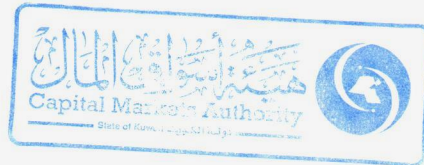 هيئة أسواق المال
Capital Markets Authority
State of Kuwait دولة الكويت